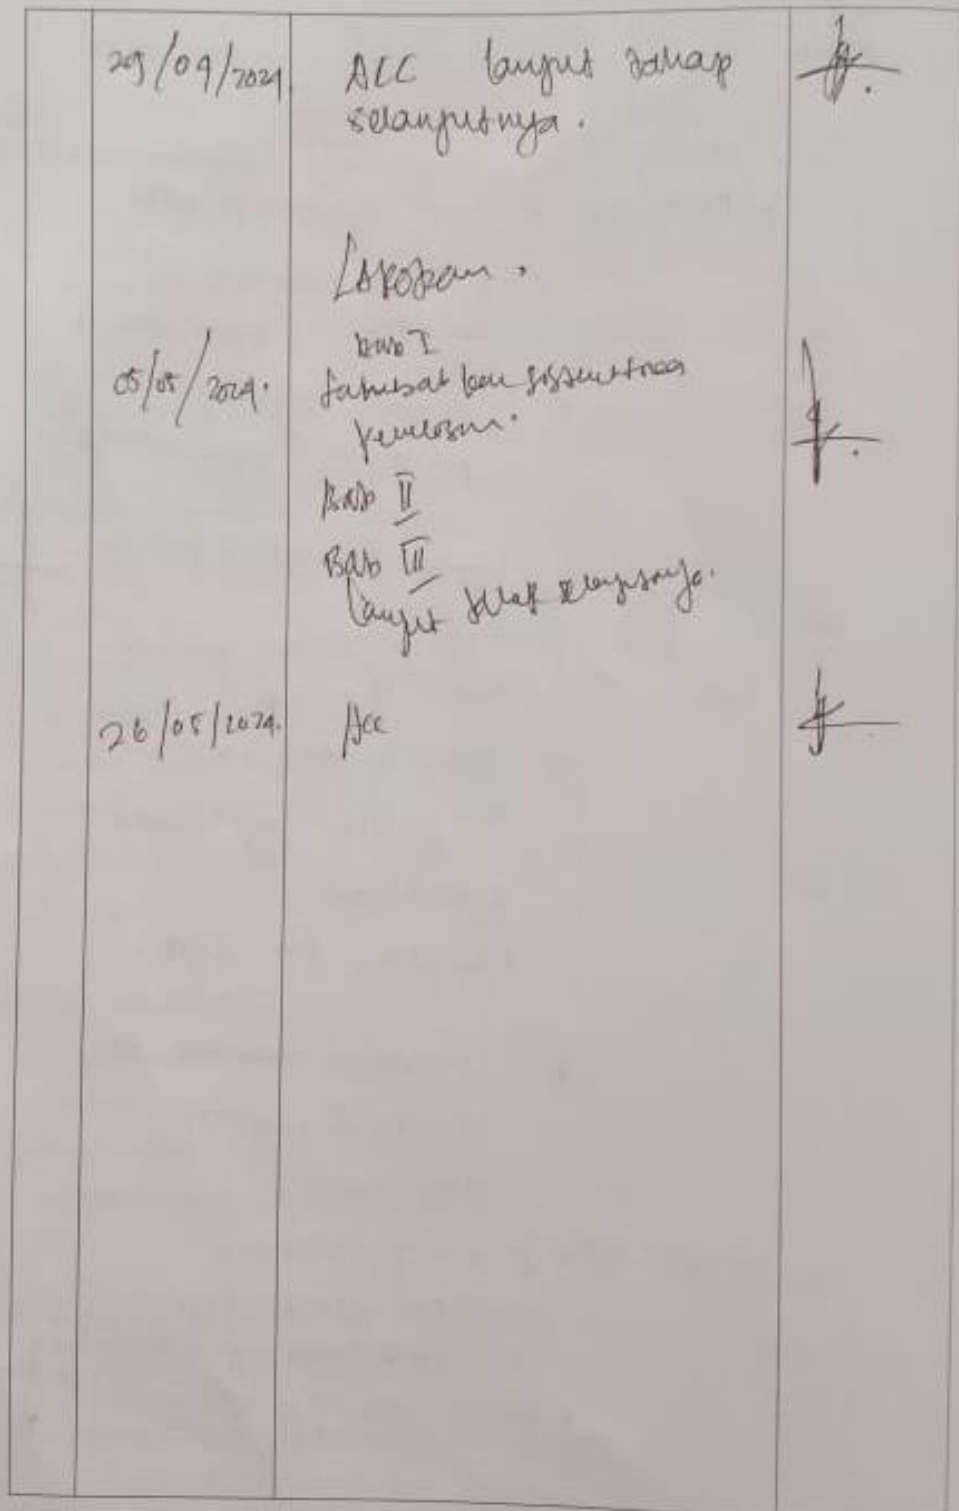 29/04/2024
ACC lanjut tahap
selanjutnya.
Laporan.
bab I
05/05/2024.
Tambahkan sistematika
penulisan.
Bab II
Bab III
lanjut tahap selanjutnya.
26/05/2024.
Acc